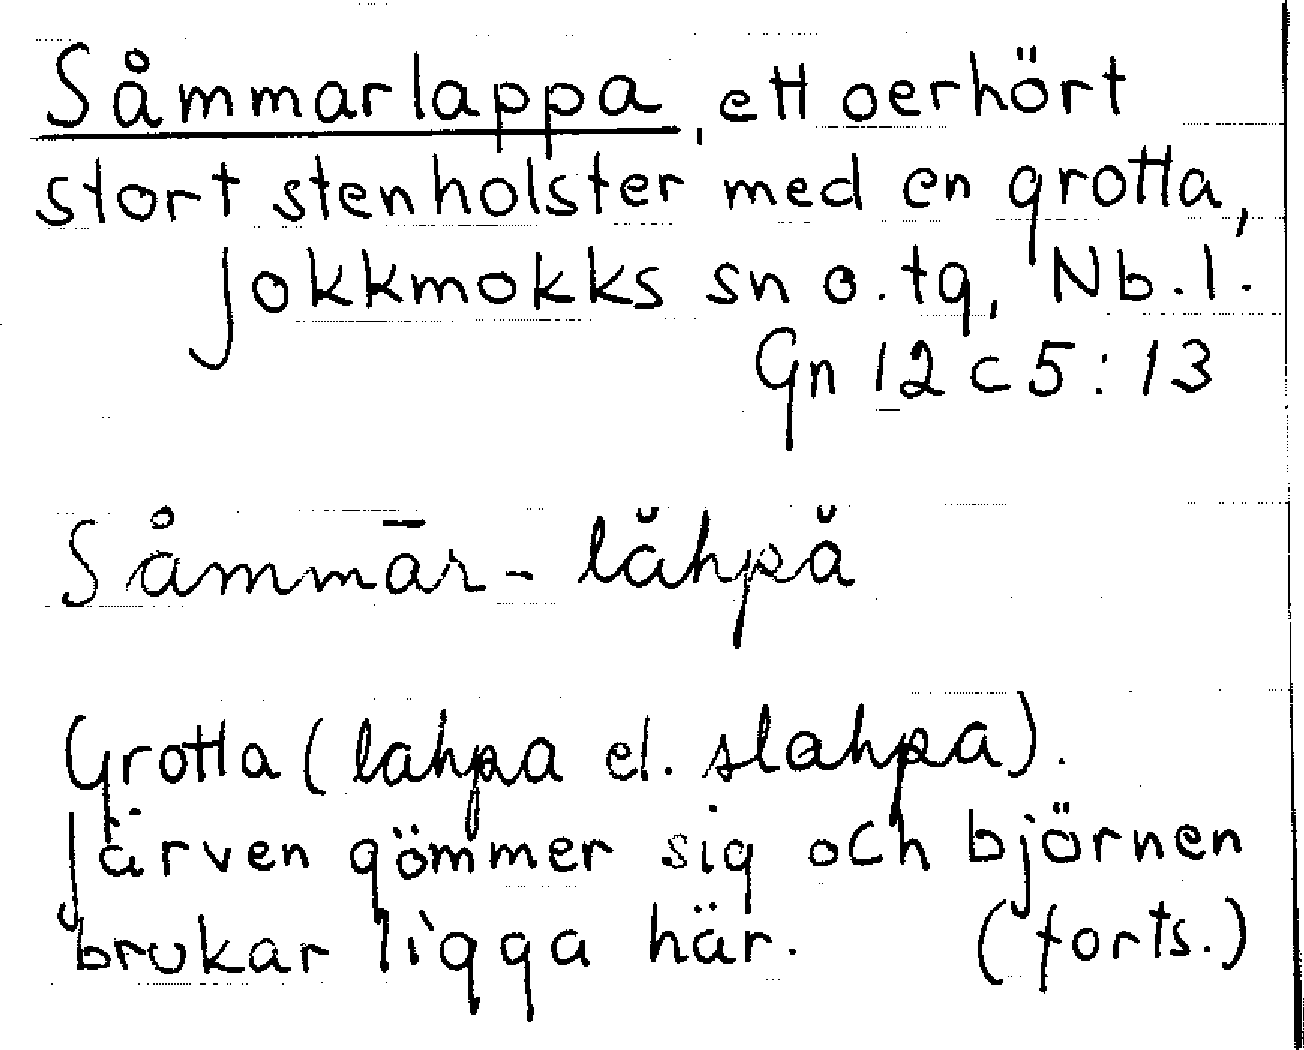 Såmmarlappa, ett oerhört
stort stenholster med en grotta,
Jokkmokks sn o. tg, Nb. l.
Gn 12 c 5 : 13
Såmmār - lăhpă
Grotta (lahpa el. slahpa).
Järven gömmer sig och björnen
brukar ligga här. (forts.)